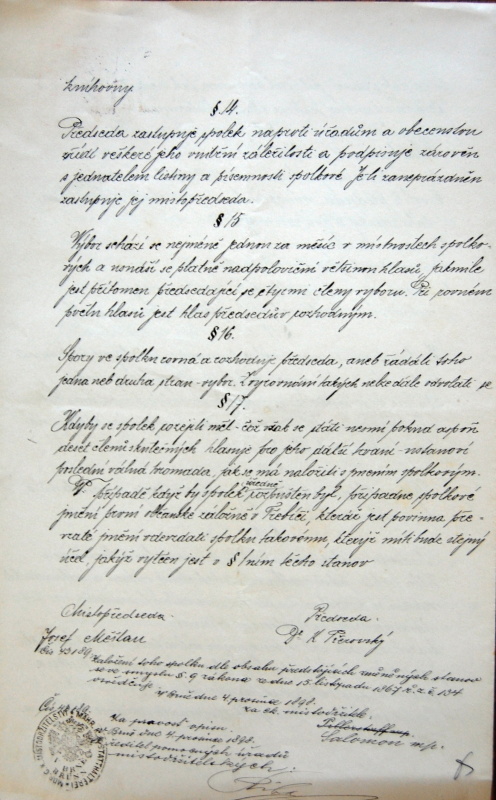 knihovny.
§ 14.
Předseda zastupuje spolek naproti úřadům a obecenstvu
řídí veškeré jeho vnitřní záležitosti a podpisuje zároveň
s jednatelem listiny a písemnosti spolkové. Je-li zaneprázdněn
zastupuje jej místopředseda.
§ 15
Výbor schází se nejméně jednou za měsíc v místnostech spolko-
vých a usnáší se platně nadpoloviční většinou hlasů, jakmile
jest přítomen předsedající se čtyřmi členy výboru. Při rovném
počtu hlasů jest hlas předsedův rozhodným.
§ 16.
Spory ve spolku rovná a rozhoduje předseda, aneb žádá-li toho
jedna neb druhá stran výbor. Z vyrovnání takých nelze dále odvolati se
§ 17.
Kdyby se spolek rozejíti měl - což však se státi nesmí pokud aspoň
deset členů skutečných hlasuje pro jeho další trvání - ustanoví
poslední valná hromada, jak se má naložiti s jměním spolkovým.
V případě když by spolek úředně rozpuštěn byl, připadne spolkové
jmění první občanské záložně v Třebíči, kteráž jest povinna, pře-
vzaté jmění odevzdati spolku takovému, kterýž míti bude stejný
účel, jakýž vytčen jest v § 1ním těchto stanov
Místopředseda Předseda
Josef Měšťan Dr.
Čís 43189
Založení toho spolku dle obsahu předstojících změněných stanov
se ve smyslu § 9 zákona ze dne 15. listopadu 1867 ř. z. č. 134
osvědčuje
V Brně dne 4 prosince 1898.
Za c.k. místodržitele
Salomon m/p.
Za pravost opisu
V Brně dne 4. prosince 1898.
Ředitel pomocných úřadů
místodržitelských: